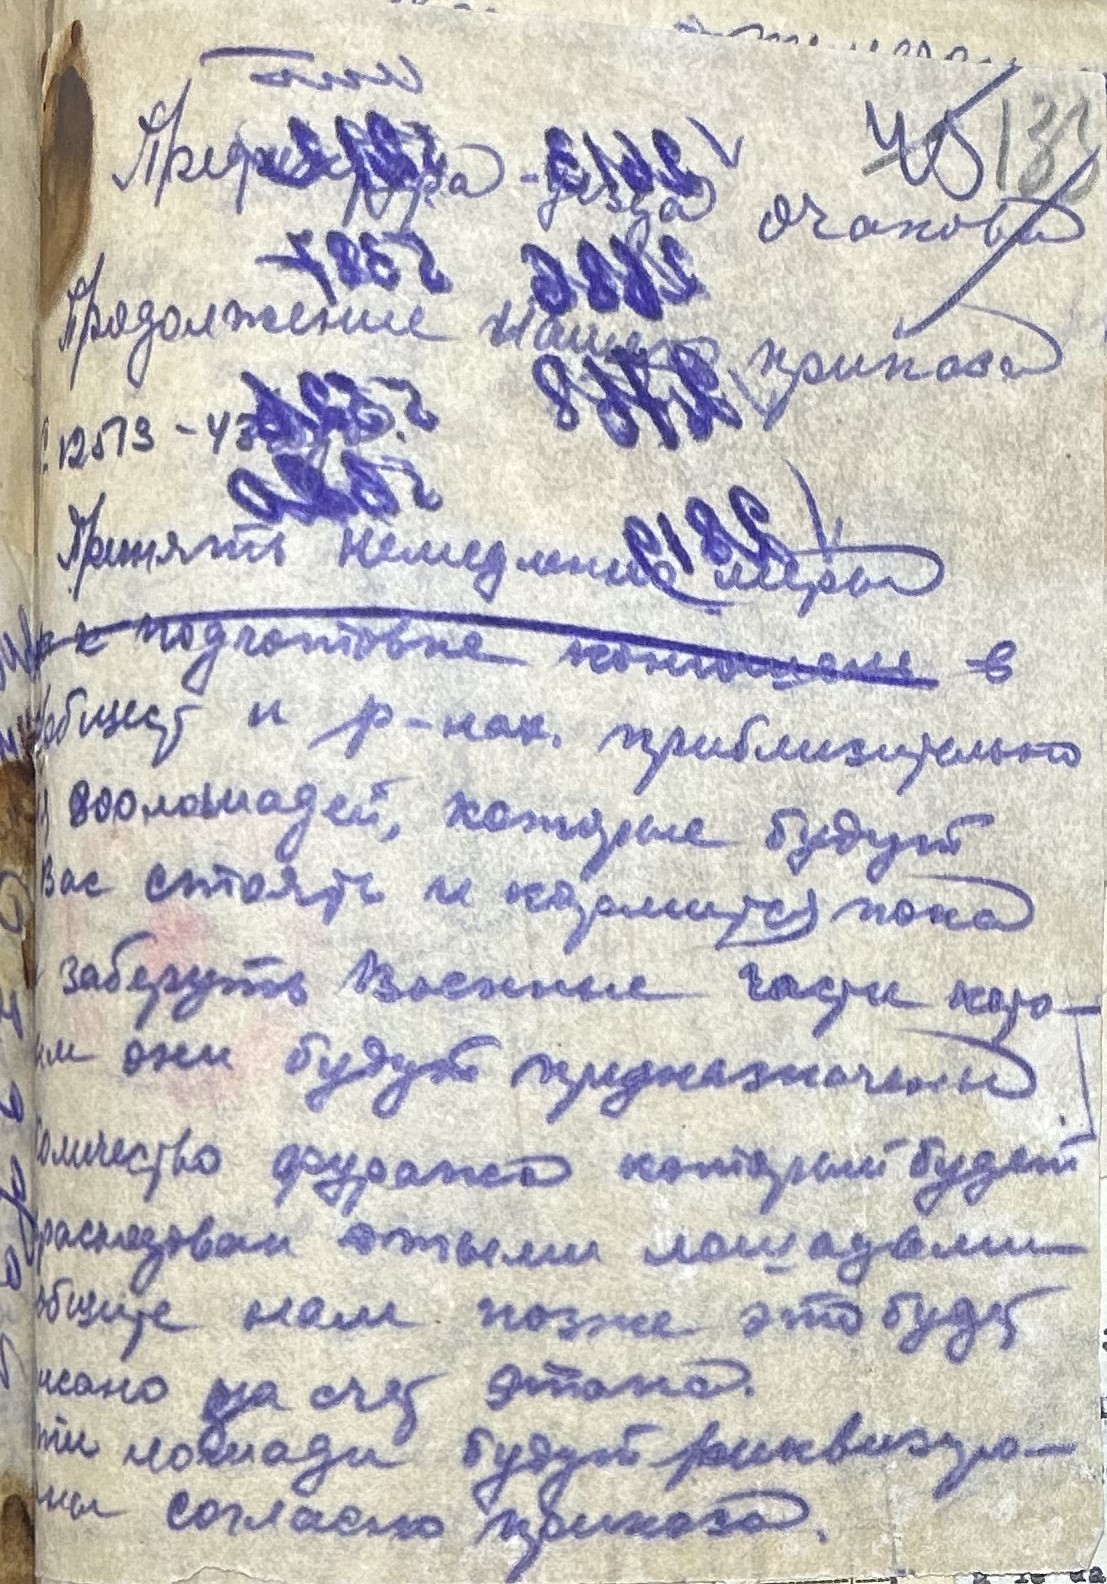 45 133
Префектура - уезда
Очакова
Продолжение Нашего приказа
12513 - 43
Принять немедление меры
к подготовке конюшень в
общест и р-нах. приблизительно
800 лошадей, которые будут
Вас стоять и кормится пока
заберуть Военные части кото-
им они будут предназначены
количество фуража который будет
расходован этьеми лошадьми
общите нам позже это будет
писано на счет Этапа.
ти лошади будут риквизиро-
ны согласно приказа.